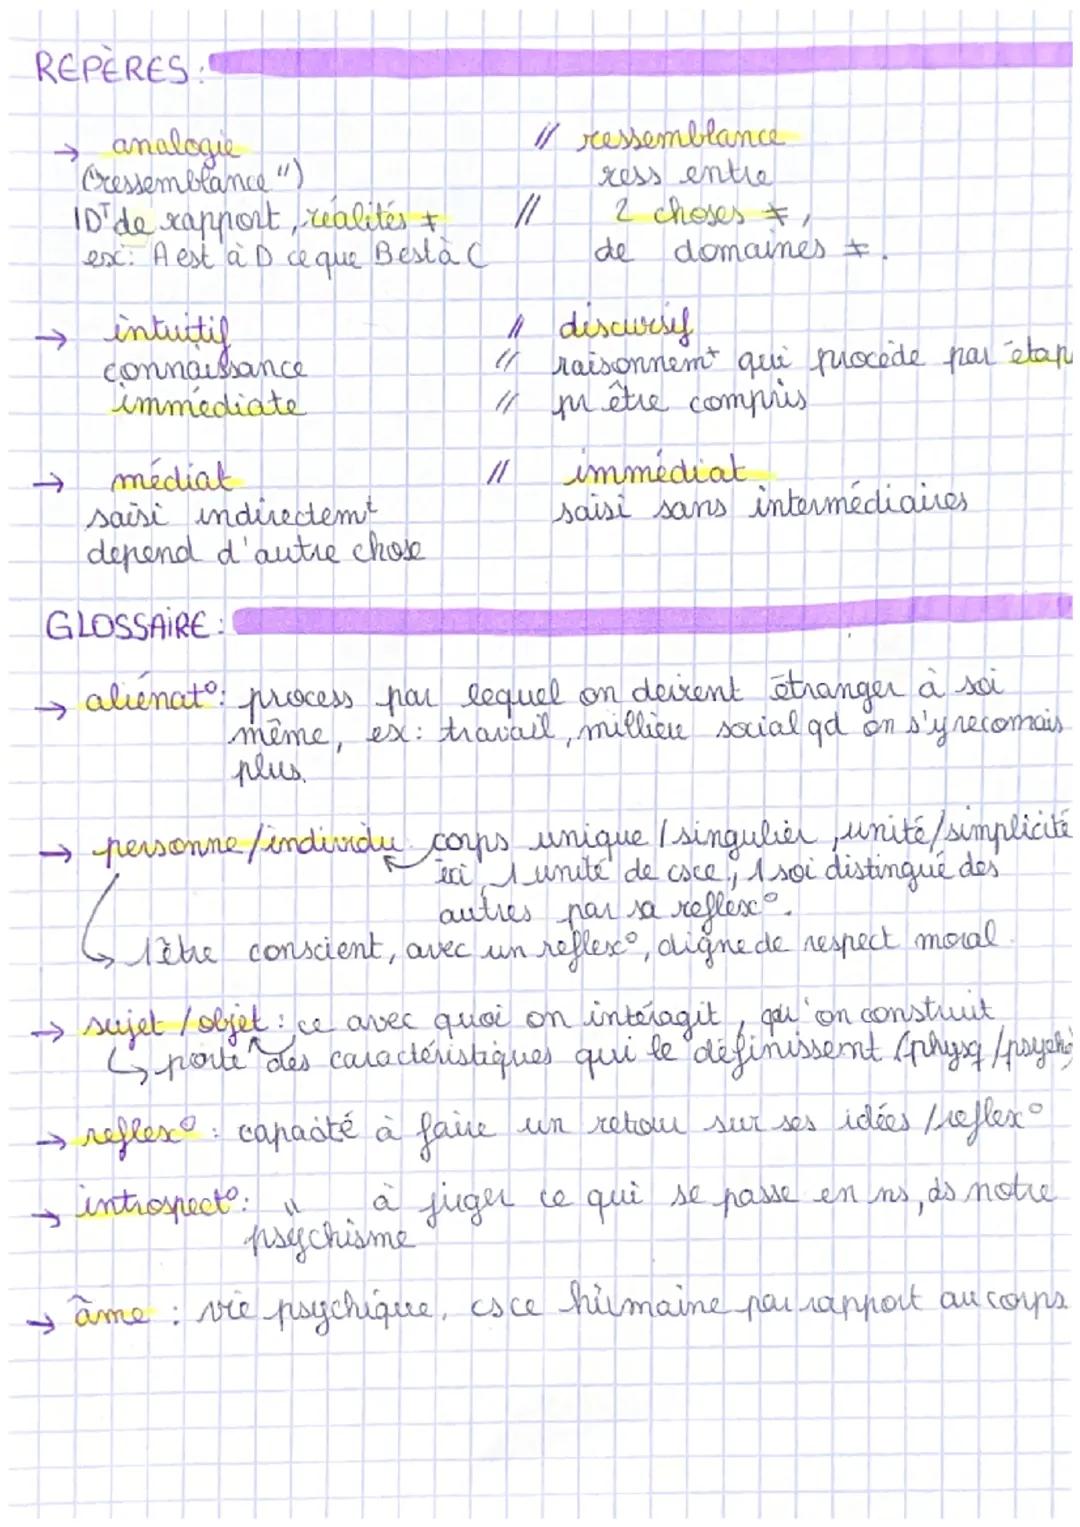 REPÈRES :
→ analogie // ressemblance
("ressemblance") ress entre
IDᵗ de rapport, réalités ≠ // 2 choses ≠,
ex: A est à D ce que B est à C de domaines ≠.
→ intuitif // discursif
connaissance // raisonnemt qui procède par étap
immédiate // pr être compris
→ médiat // immédiat
saisi indirectemt saisi sans intermédiaires
depend d'autre chose
GLOSSAIRE :
→ aliénat°: process par lequel on devient étranger à soi
même, ex: travail, millieu social qd on s'y reconnais
plus.
→ personne/individu corps unique / singulier, unité/simplicité
ici 1 unité de csce, 1 soi distingué des
autres par sa reflex°.
↳ 1 être conscient, avec un reflex°, digne de respect moral.
→ sujet / objet : ce avec quoi on intéragit, qu'on construit
↳ porte des caractéristiques qui le définissent (physq / psycho
→ reflex° : capacité à faire un retour sur ses idées / reflex°
→ introspect°: " à juger ce qui se passe en ns, ds notre
psychisme
→ âme : vie psychique, csce humaine par rapport au corps.